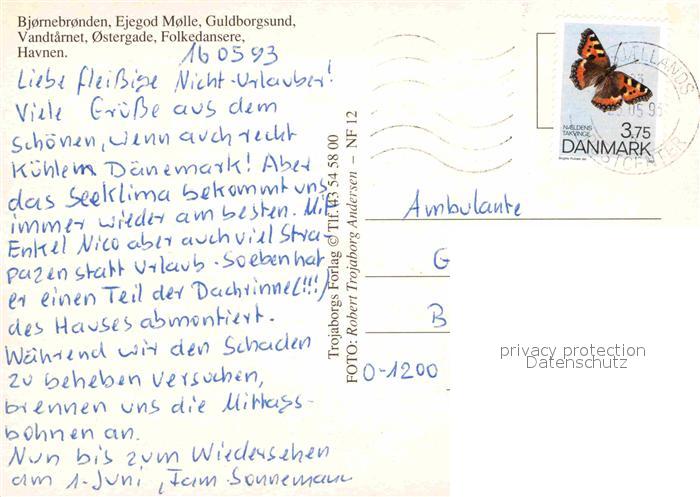 Bjørnebrønden, Ejegod Mølle, Guldborgsund,
Vandtårnet, Østergade, Folkedansere,
Havnen.
160593
Liebe fleißige Nicht-Urlauber!
Viele Grüße aus dem
schönen, wenn auch recht
kühlem Dänemark! Aber
das Seeklima bekommt uns
immer wieder am besten. Mit
Enkel Nico aber auch viel Stra-
pazen statt Urlaub. Soeben hat
er einen Teil der Dachrinne(!!!)
des Hauses abmontiert.
Während wir den Schaden
zu beheben versuchen,
brennen uns die Mittags-
bohnen an.
Nun bis zum Wiedersehen
am 1. Juni, Fam. Sonnemann
Trojaborgs Forlag © Tlf. 43 54 58 00
FOTO: Robert Trojaborg Andersen - NF 12
NÆLDENS
TAKVINGE
3.75
DANMARK
05 93
Ambulante
G
B
O-1200
privacy protection
Datenschutz